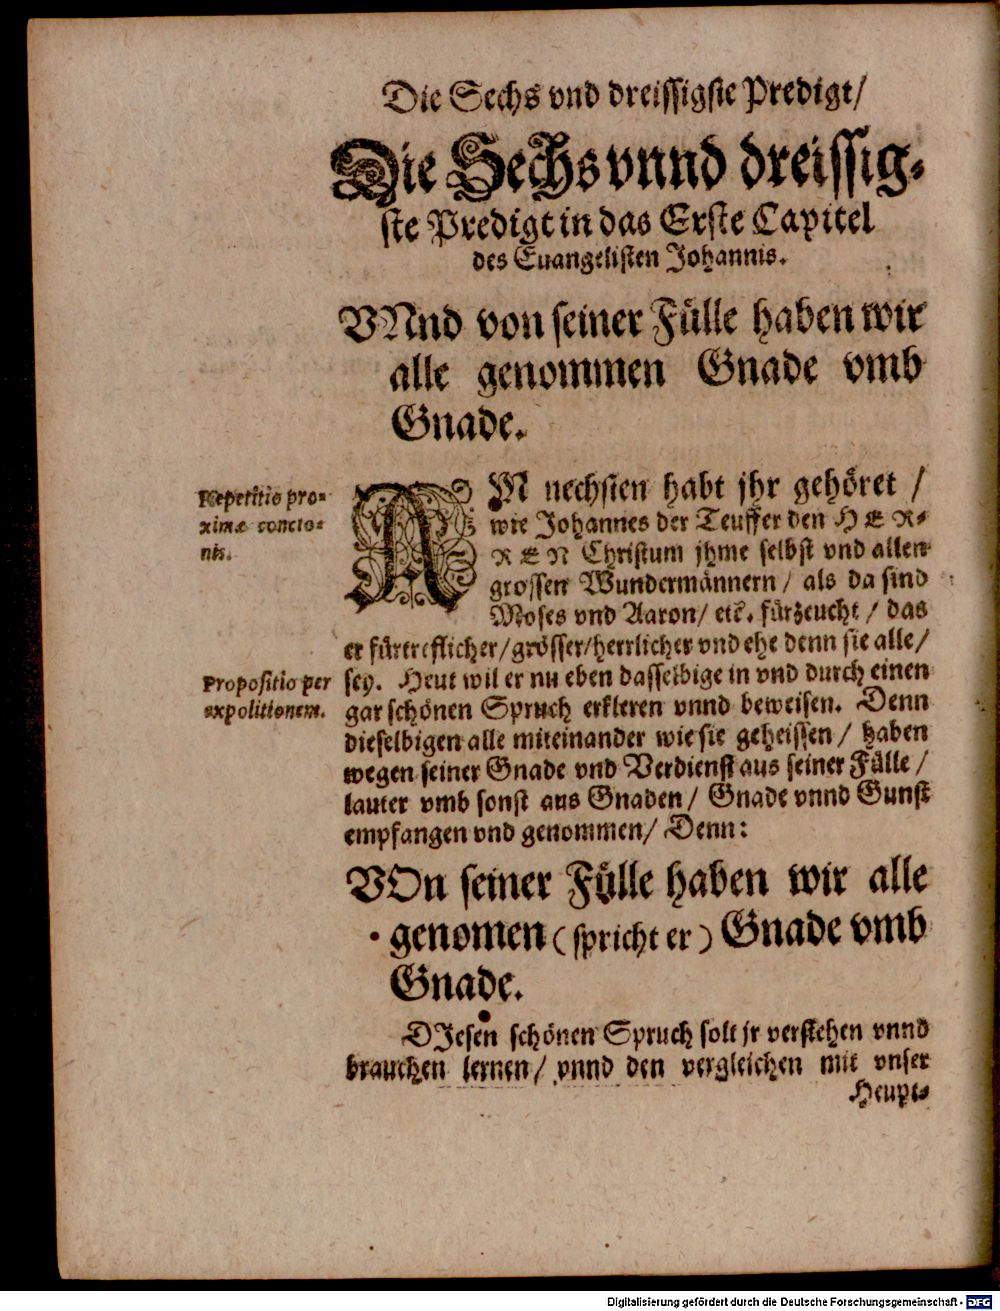 Die Sechs vnd dreissigste Predigt/
Die Sechs vnnd dreissig⸗
ste Predigt in das Erste Capitel
des Euangelisten Johannis.
VNnd von seiner Fülle haben wir
alle genommen Gnade vmb
Gnade.
Repetitio pro⸗
ximæ concio⸗
nis.
AM nechsten habt jhr gehöret /
wie Johannes der Teuffer den HER⸗
REN Christum jhme selbst vnd allen
grossen Wundermännern / als da sind
Moses vnd Aaron/ etc. fürzeucht / das
er fürtreflicher/grösser/herrlicher vnd ehe denn sie alle/
Propositio per
expolitionem.
sey. Heut wil er nu eben dasselbige in vnd durch einen
gar schönen Spruch erkleren vnnd beweisen. Denn
dieselbigen alle miteinander wie sie geheissen / haben
wegen seiner Gnade vnd Verdienst aus seiner Fülle /
lauter vmb sonst aus Gnaden/ Gnade vnnd Gunst
empfangen vnd genommen/ Denn:
VOn seiner Fülle haben wir alle
genomen (spricht er) Gnade vmb
Gnade.
DIesen schönen Spruch solt jr verstehen vnnd
brauchen lernen/ vnnd den vergleichen mit vnser
Heupt⸗
Digitalisierung gefördert durch die Deutsche Forschungsgemeinschaft - DFG